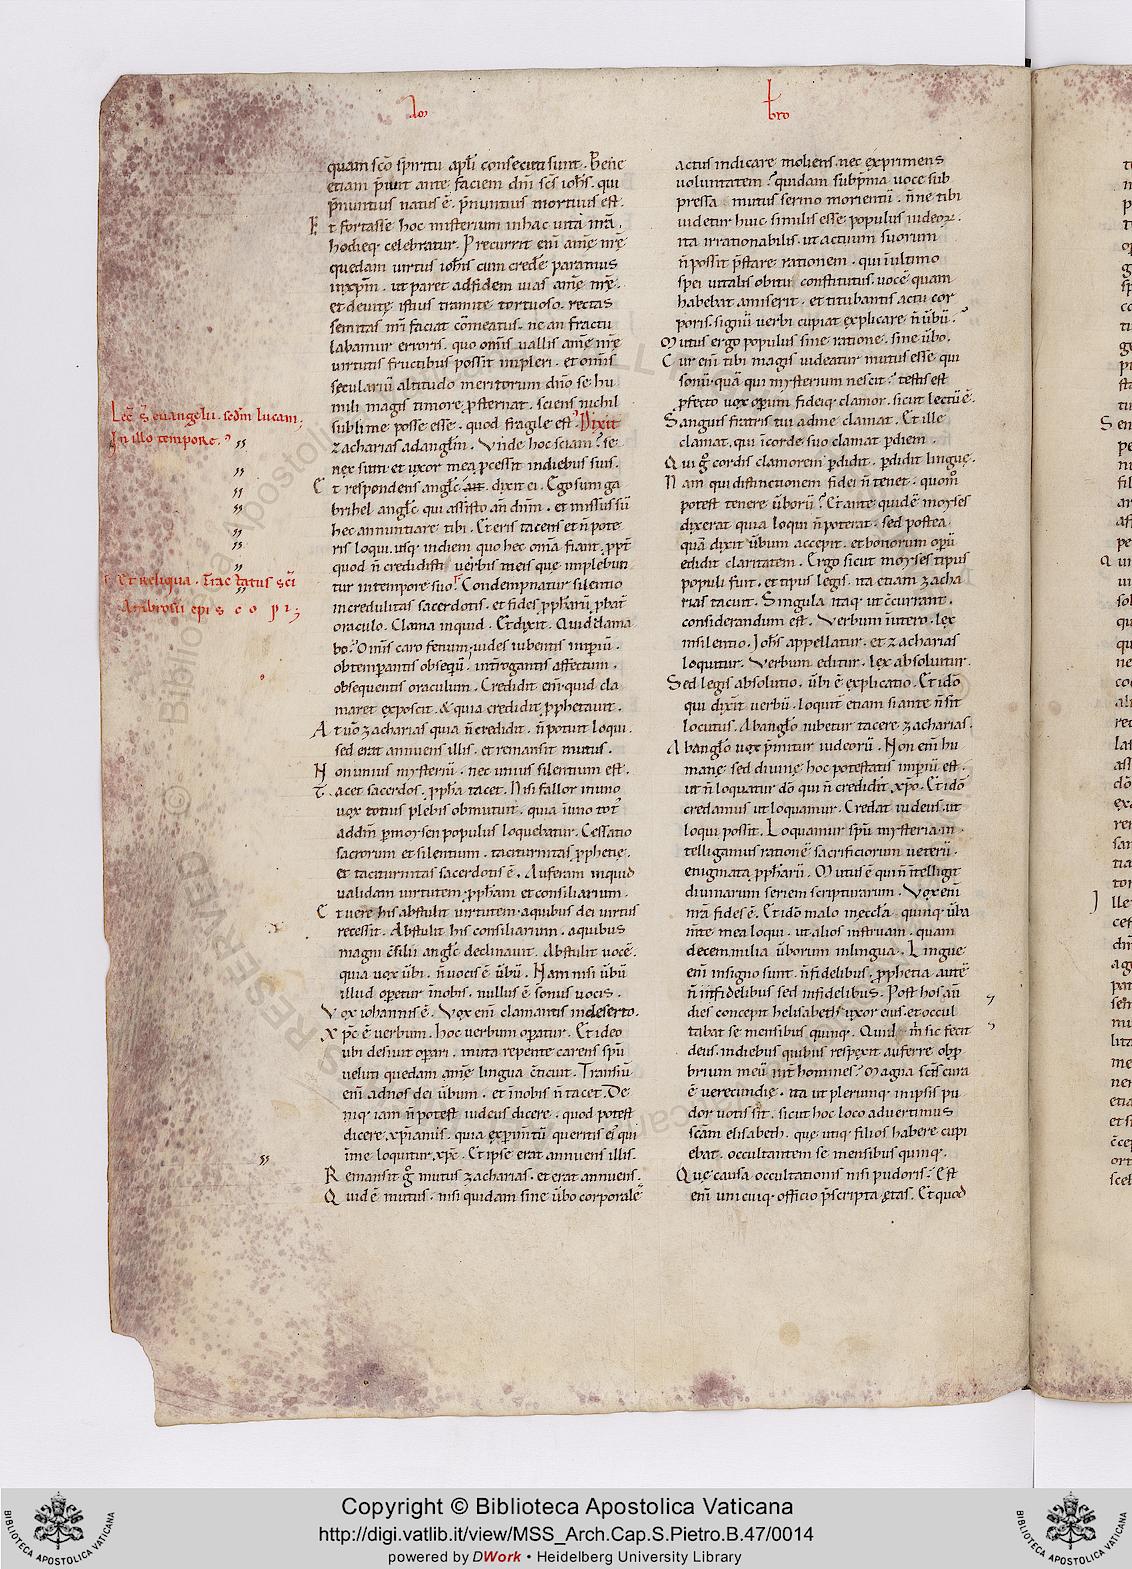 quam sc̄o spiritu apl̄i consecuti sunt. Bene
etiam p̄iuit ante faciem dn̄i sc̄s ioh̄s. qui
p̄nuntius natus ē. p̄nuntius mortuus est.
Et fortasse hoc misterium in hac uita nr̄a.
hodieq; celebratur. Precurrit enī
quedam uirtus ioh̄is cum credere paramus
in xp̄m. ut paret ad fidem uias
et deuitę istius tramite tortuoso. rectas
semitas nr̄i faciat cōmeatus. ne an fractu
labamur erroris. quo om̄is uallis
uirtutis fructibus possit impleri. et om̄is
seculariū altitudo meritorum dn̄o se hu
mili magis timore p̄sternat. sciens nichil
sublime posse esse. quod fragile est. Dixit
zacharias ad angl̄m. Vnde hoc sciam? se
nex sum et uxor mea p̄cessit in diebus suis.
Et respondens angl̄s dixit ei. Ego sum ga
brihel angl̄s qui assisto an̄ dn̄m. et missus sū
hec annuntiare tibi. Et eris tacens et n̄ pote
ris loqui. usq; in diem quo hec om̄a fiant. ppt̄
quod n̄ credidisti uerbis meis que implebun
tur in tempore suo. Condempnatur silentio
incredulitas sacerdotis. et fides pphetarū p̄bat̄
oraculo. Clama inquid. Et dixit. Quid clama
bo? Om̄is caro fenum. uides iubentis imp̄iū.
obtemperantis obsequiū. int̄rogantis affectum.
obsequentis oraculum. Credidit enī quid cla
maret exposcit. & quia credidit pphetauit.
At uō zacharias quia n̄ credidit. n̄ potuit loqui.
sed erat annuens illis. et remansit mutus.
Non unius mysteriū. nec unius silentium est.
Tacet sacerdos. ppha tacet. Nisi fallor in uno
uox totius plebis obmutuit. quia in uno tot
ad dn̄m p̄ moysen populus loquebatur. Cessatio
sacrorum et silentium. taciturnitas pphetię.
et taciturnitas sacerdotis ē. Auferam inquid
ualidam uirtutem. ppham et consiliarium.
Et uere his abstulit uirtutem. a quibus dei uirtus
recessit. Abstulit his consiliarium. a quibus
magni c̄silii angl̄s declinauit. Abstulit uocē.
quia uox ūbi. n̄ uocis ē ūbū. Nam nisi ūbū
illud op̄etur in nobis. nullus ē sonus uocis.
Vox iohannis ē. Vox enī clamantis in deserto.
Xp̄c ē uerbum. hoc uerbum op̄atur. Et ideo
ubi desiuit op̄ari. muta repente carens sp̄u
ueluti quedam lingua c̄ticuit. Transiit
enī ad nos dei ūbum. et in nobis n̄ tacet. De
niq; iam n̄ potest iudeus dicere. quod potest
dicere xp̄ianus. quia exp̄imtū queritis ei qui
in me loquitur xp̄c. Et ipse erat annuens illis.
Remansit g̊ mutus zacharias. et erat annuens.
Quid ē mutus. nisi quidam sine ūbo corporale
Lec̄ s̄ euangelii. scd̄m lucam.
In illo tempore.
Et reliqua. Tractatus sc̄i
Ambrosii episcopi;
bro
actus indicare moliens. nec exprimens
uoluntatem? quidam sub p̄ma uoce sub
pressa mutus sermo morientū. n̄ne tibi
uidetur huic similis esse populus iudeoꝝ.
ita irrationabilis. ut actuum suorum
n̄ possit p̄stare rationem. qui in ultimo
spei uitalis obitu constitutus. uocē quam
habebat amiserit. et titubantis actu cor
poris. signū uerbi cupiat explicare. n̄ ūbū?
Mutus ergo populus sine ratione. sine ūbo.
Cur enī tibi magis uideatur mutus esse qui
sonū. quā qui mysterium nescit? testis est
p̄fecto uox op̄um. fideiq; clamor. sicut lectū ē.
Sanguis fratris tui ad me clamat. Et ille
clamat. qui in corde suo clamat p̄ diem.
Qui g̊ cordis clamorem p̄didit. p̄didit linguę.
Nam qui distinctionem fidei n̄ tenet. quom̊
potest tenere ūborū? Et ante quidē moyses
dixerat quia loqui n̄ poterat. sed postea
quā dixit ūbum accepit. et bonorum op̄ū
edidit claritatem. Ergo sicut moyses tipus
populi fuit. et tipus legis. ita etiam zacha
rias tacuit. Singula itaq; ut c̄currant.
considerandum est. Verbum in utero. lex
in silentio. Ioh̄s appellatur. et zacharias
loquitur. Verbum editur. lex absoluitur.
Sed legis absolutio. ūbi ē explicatio. Et idō
qui dixit uerbū. loquit̄ etiam si ante n̄ sit
locutus. Ab anglo iubetur tacere zacharias.
Ab anglo uox p̄mitur iudeorū. Non enī hu
manę. sed diuinę hoc potestatis imp̄iū est.
ut n̄ loquatur dō qui n̄ credidit xp̄o. Et idō
credamus ut loquamur. Credat iudeus. ut
loqui possit. Loquamur sp̄u mysteria. in
telligamus rationē sacrificiorum ueterū.
enigmata pphetarū. Mutus ē qui n̄ intelligit
diuinarum seriem scripturarum. Vox enī
nr̄a fides ē. Et idō malo in eccl̄a quinq; ūba
m̄te mea loqui. ut alios instruam. quam
decem milia ūborum in lingua. Lingue
enī in signo sunt. n̄ fidelibus. pphetia autē
n̄ infidelibus sed in fidelibus. Post hos aū
dies concepit helisabeth uxor eius. et occul
tabat se mensibus quinq;. Quid m̄ sic fecit
deus. in diebus quibus respexit auferre obp̄
brium meū int̄ homines? Magna sc̄is cura
ē uerecundię. ita ut plerumq; in ipsis pu
dor uotis sit. sicut hoc loco aduertimus
sc̄am elisabeth. que utiq; filios habere cupi
ebat. occultantem se mensibus quinq;.
Quę causa occultationis nisi pudoris? Est
enī uni cuiq; officio p̄scripta ętas. Et quod
© Biblioteca Apostolica Vaticana
Copyright © Biblioteca Apostolica Vaticana
http://digi.vatlib.it/view/MSS_Arch.Cap.S.Pietro.B.47/0014
powered by DWork • Heidelberg University Library
BIBLIOTECA APOSTOLICA VATICANA
BIBLIOTECA APOSTOLICA VATICANA